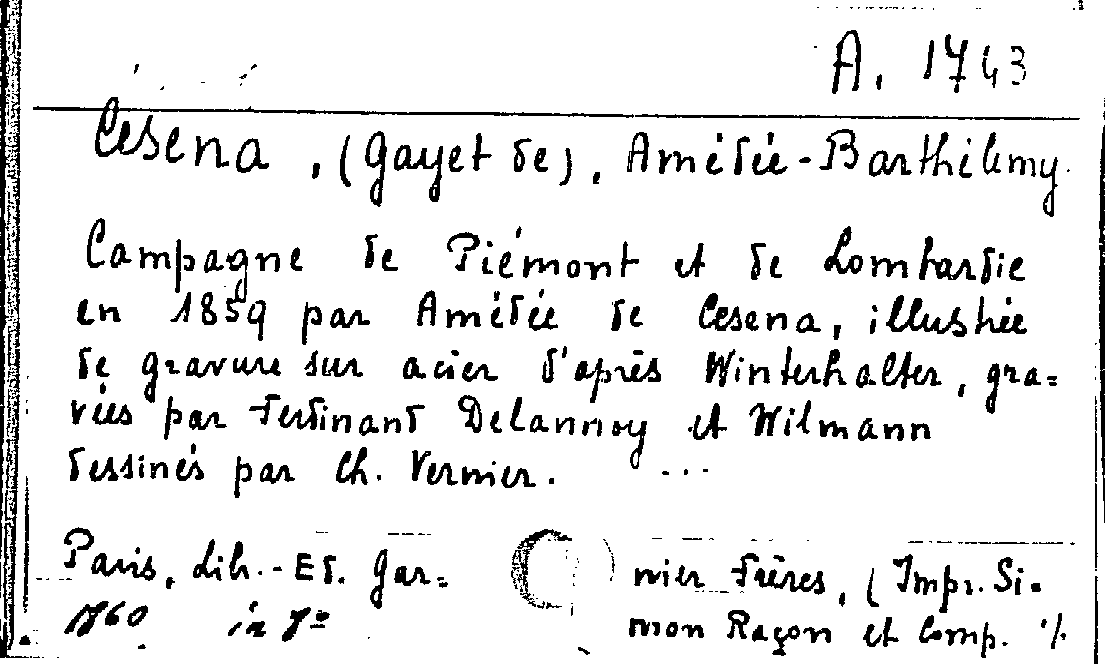 A. 1743
Cesena, (Gayet de), Amédée-Barthélemy.
Campagne de Piémont et de Lombardie
en 1859 par Amédée de Cesena, illustrée
de gravure sur acier d'après Winterhalter, gra=
vées par Ferdinand Delannoy et Wilmann
dessinés par Ch. Vernier. ...
Paris, lib.-Ed. Gar= nier frères, (Impr. Si=
1860 in 7º mon Raçon et Comp. %